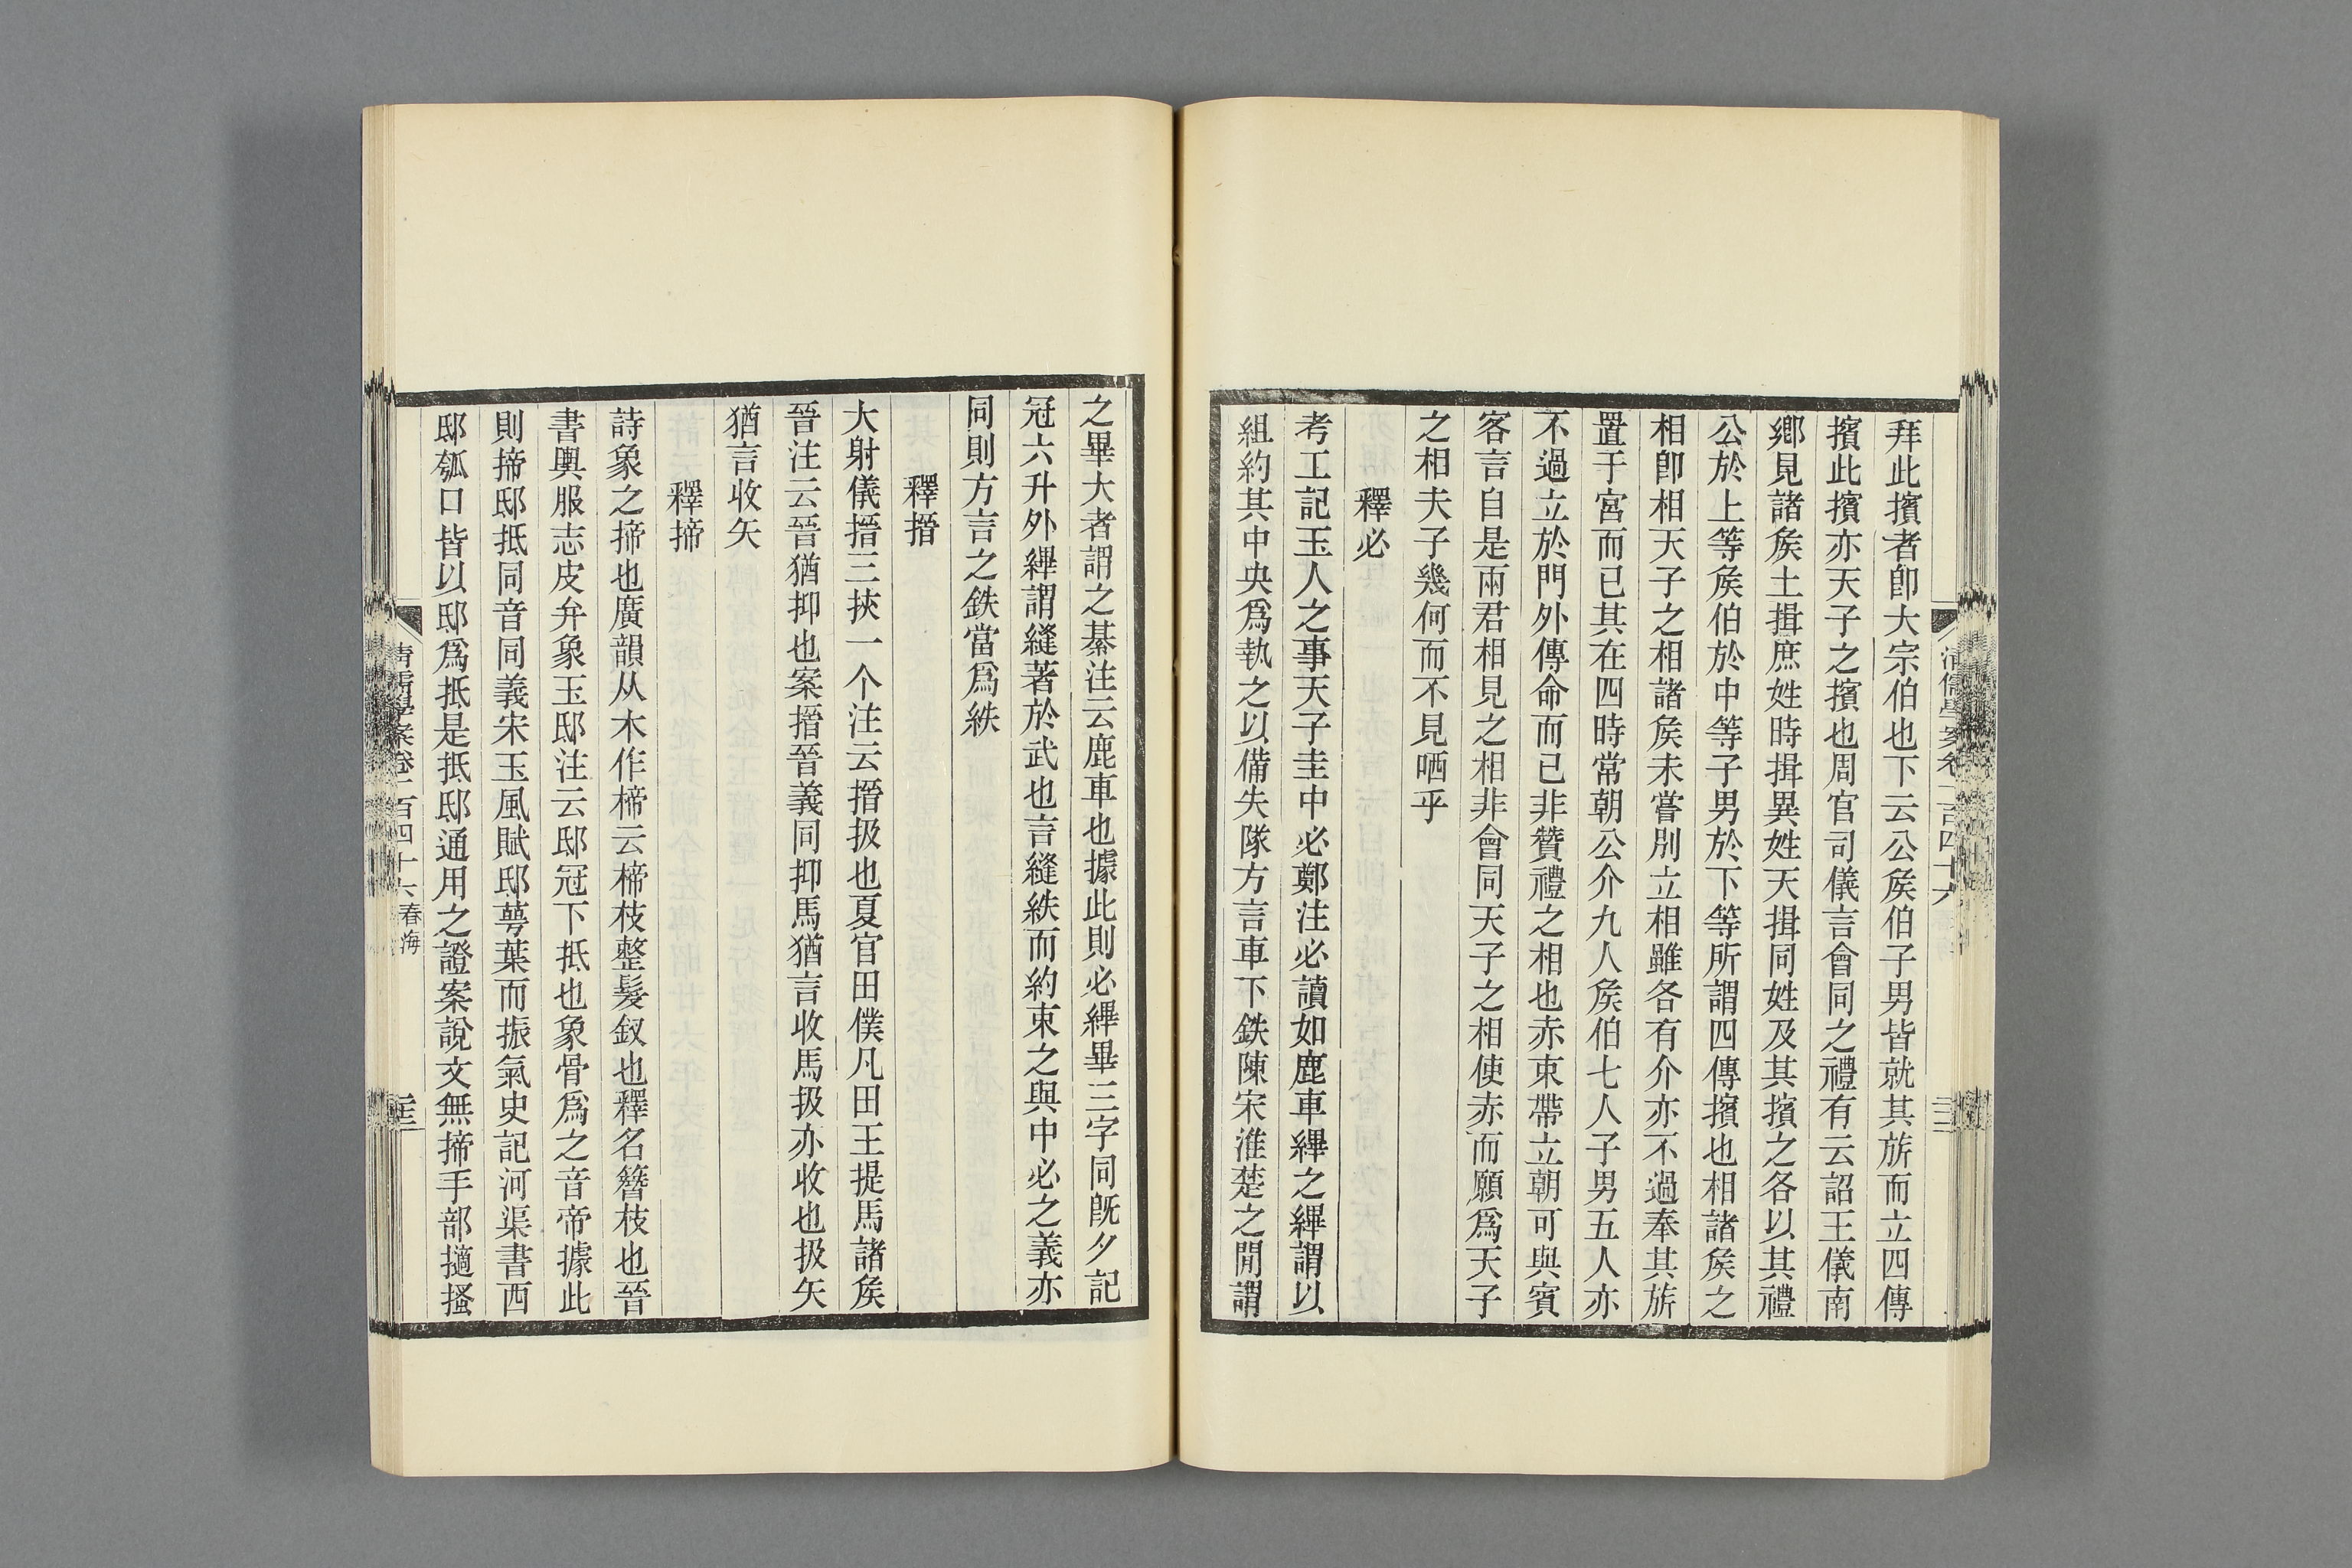 拜此擯者卽大宗伯也下云公矦伯子男皆就其旂而立四傳
擯此擯亦天子之擯也周官司儀言會同之禮有云詔王儀南
鄉見諸矦土揖庶姓時揖異姓天揖同姓及其擯之各以其禮
公於上等矦伯於中等子男於下等所謂四傳擯也相諸矦之
相卽相天子之相諸矦未嘗別立相雖各有介亦不過奉其旂
置于宮而已其在四時常朝公介九人矦伯七人子男五人亦
不過立於門外傳命而已非贊禮之相也赤束帶立朝可與賓
客言自是兩君相見之相非會同天子之相使赤而願爲天子
之相夫子幾何而不見哂乎
釋必
考工記玉人之事天子圭中必鄭注必讀如鹿車縪之縪謂以
組約其中央爲執之以備失隊方言車下鉄陳宋淮楚之閒謂
之畢大者謂之綦注云鹿車也據此則必縪畢三字同旣夕記
冠六升外縪謂縫著於武也言縫紩而約束之與中必之義亦
同則方言之鉄當爲紩
釋搢
大射儀搢三挾一个注云搢扱也夏官田僕凡田王提馬諸矦
晉注云晉猶抑也案搢晉義同抑馬猶言收馬扱亦收也扱矢
猶言收矢
釋揥
詩象之揥也廣韻从木作楴云楴枝整髮釵也釋名簪枝也晉
書輿服志皮弁象玉邸注云邸冠下抵也象骨爲之音帝據此
則揥邸抵同音同義宋玉風賦邸萼葉而振氣史記河渠書西
邸瓠口皆以邸爲抵是抵邸通用之證案說文無揥手部擿搔
清儒學案卷一百四十六 春海